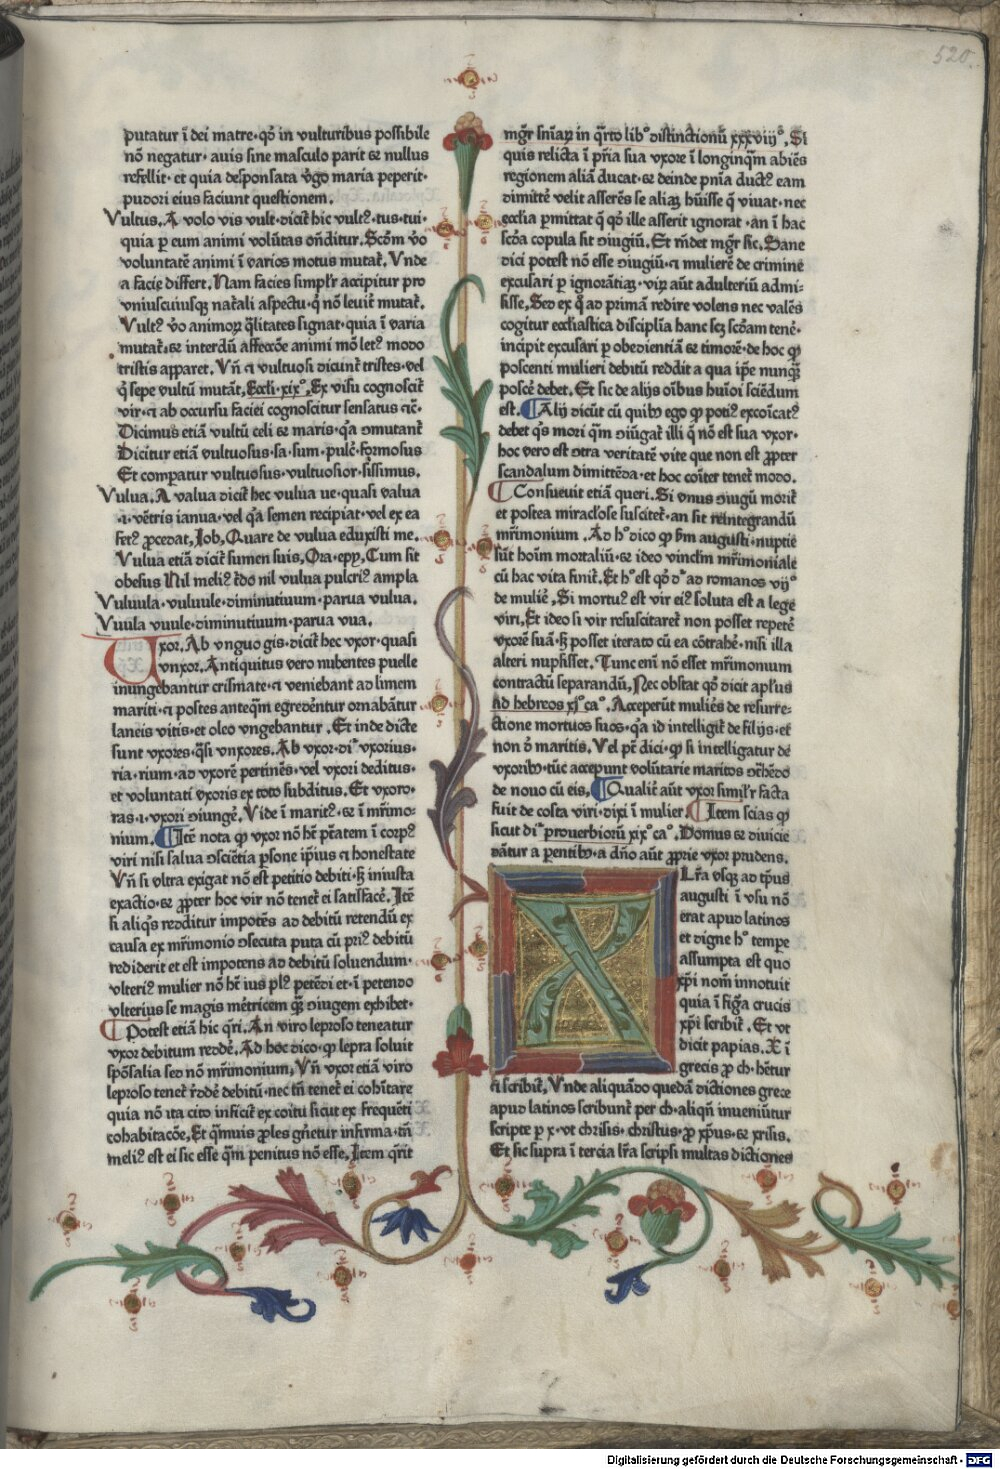 520.
putatur ī dei matre·qꝺ̕ in vulturibus possibile
nō negatur·auis sine masculo parit ⁊ nullus
refellit·et quia desponsata v̕go maria peperit·
pudori eius faciunt questionem.
Vultus. A volo vis vult·dicit̕ hic vult⁹·tus·tui·
quia ꝑ eum animi volūtas oñditur. Scōm v̕o
voluntatē animi ī varios motus mutat̕. Vnde
a facie differt. Nam facies simpl̕r accipitur pro
vniuscuiusqꝫ nat̕ali aspectu·q̕ nō leuit̕ mutat̕.
Vult⁹ v̕o animoꝝ q̄litates signat·quia ī varia
mutat̕·⁊ interdū affectōe animi mō let⁹ modo
tristis apparet. Vñ ⁊ vultuosi dicunt̕ tristes·vel
q̕ sepe vultū mutāt. Eccli·xix°. Ex visu cognoscit̕
vir·⁊ ab occursu faciei cognoscitur sensatus ⁊c̄·
Dicimus etiā vultū celi ⁊ maris·q̕a ꝯmutant̕
Dicitur etiā vultuosus·sa·sum·pulc̕·formosus
Et comparatur vultuosus·vultuosior·sissimus.
Vulua. A valua dicit̕ hec vulua ue·quasi valua
·i·vētris ianua·vel q̕a semen recipiat·vel ex ea
fet⁹ ꝓcedat. Iob. Quare de vulua eduxisti me.
Vulua etiā dicit̕ sumen suis. Ora·epy. Cum sit
obesus Nil meli⁹ t̕do nil vulua pulcri⁹ ampla
Vuluula·vuluule·diminutiuum·parua vulua.
Vuula vuule·diminutiuum·parua vua.
Vxor. Ab vnguo gis·dicit̕ hec vxor·quasi
vnxor. Antiquitus vero nubentes puelle
inungebantur crismate·⁊ veniebant ad limem
mariti·⁊ postes anteq̄m egredētur ornabātur
laneis vitis·et oleo vngebantur. Et inde dicte
sunt vxores·q̄si vnxores. Ab vxor·di͛ vxorius·
ria·rium·ad vxorē pertinēs·vel vxori deditus·
et voluntati vxoris ex toto subditus. Et vxoro·
ras·i·vxori ꝯiunge͛. Vide ī marit⁹·⁊ ī mr̄imo-
nium. Itē nota qꝫ vxor nō ht̕ ptatem ī corp⁹
viri nisi salua ꝯsciētia ꝑsone ip̄ius ⁊ honestate
Vñ si vltra exigat nō est petitio debiti·sꝫ iniusta
exactio·⁊ ꝓpter hoc vir nō tenet̕ ei satisface͛. Itē
si aliq̕s redditur impotēs ad debitū reddendū ex
causa ex mr̄imonio ꝯsecuta puta cū pri⁹ debitū
rediderit et est impotens ad debitū soluendum·
vlteri⁹ mulier nō ht̕ ius pl⁹ petēdi et·ī petendo
vlterius se magis metricem q̄ꝫ ꝯiugem exhibet·
Potest etiā hic q̄ri. An viro leproso teneatur
vxor debitum redde͛. Ad hoc dico·qꝫ lepra soluit
spōsalia sed nō mr̄imonium. Vñ vxor etiā viro
leproso tenet̕ r̄dde͛ debitū·nec tn̄ tenet̕ ei cohītare
quia nō ita cito inficit̕ ex coitu sicut ex frequēti
cohabitacōe. Et q̄muis ꝓles gn̄etur infirma·tn̄
meli⁹ est ei sic esse q̄m penitus nō esse. Item q̄rit
mgr̄ sn̄iaꝝ in q̄rto lib° distinctionū xxxviij°. Si
quis relicta ī pr̄ia sua vxore ī longinq̄m abiēs
regionem aliā ducat·⁊ deinde pn̄ia duct⁹ eam
dimitte͛ velit asserēs se aliaꝫ hūisse q̄ viuat·nec
ecclia ꝑmittat q̕ qꝺ̕ ille asserit ignorat·an ī hac
scd̄a copula sit ꝯiugiū. Et rn̄det mgr̄ sic. Sane
dici potest nō esse ꝯiugiū·⁊ mulierē de crimine
excusari ꝑ ignorātiaꝫ·viꝝ aūt adulteriū admi-
sisse. Sed ex q̊ ad primā redire volens nec valēs
cogitur ecclīastica disciplīa hanc scꝫ scd̄am tene͛·
incipit excusari ꝑ obedientiā ⁊ timorē·de hoc qꝫ
poscenti mulieri debitū reddit a qua ip̄e nunq̄ꝫ
posce͛ debet. Et sic de alijs oībus huīoi sciēdum
est. Alij dicūt cū quibꝫ ego qꝫ poti⁹ excoīcat⁹
debet q̕s mori q̄m ꝯiūgat̕ illi q̄ nō est sua vxor·
hoc vero est ꝯtra veritatē vite que non est ꝓpter
scandalum dimittēda·et hoc coīter tenet̕ modo.
Consueuit etiā queri. Si vnus ꝯiugū morit̕
et postea miraclōse suscitet̕·an sit reintegrandū
mr̄imonium. Ad h° dico qꝫ bm̄ augusti·nuptie
sūt hoīm mortaliū·⁊ ideo vinclm̄ mr̄imoniale
cū hac vita finit̕. Et h° est qꝺ̕ d͛ ad romanos vij°
de mulie͛. Si mortu⁹ est vir ei⁹ soluta est a lege
viri. Et ideo si vir resuscitaret̕ non posset repete͛
vxorē suā·sꝫ posset iterato cū ea cōtrahe͛·nisi illa
alteri nupsisset. Tunc enī nō esset mr̄imonium
contractū separandū. Nec obstat qꝺ̕ dicit apl̄us
ad hebreos xj° ca°. Acceperūt mulie͛s de resurre-
ctione mortuos suos·q̕a id intelligit̕ de filijs·et
non ꝺ̕ maritis. Vel pt̄ dici·qꝫ si intelligatur de
vxoribꝫ·tūc accepūt volūtarie maritos ꝯt̕hēdo
de nouo cū eis. Qualit̕ aūt vxor simil̕r facta
fuit de costa viri·dixi ī mulier. Item scias qꝫ
sicut di͛ prouerbiorū xix° ca°. Domus ⁊ diuicie
dātur a pēntibꝫ·a dn̄o aūt ꝓprie vxor prudens.
X Lr̄a vsqꝫ ad tp̄us
augusti ī vsu nō
erat apud latinos
et digne h° tempe
assumpta est quo
xp̄i nom̄ innotuit
quia ī fig̕a crucis
xp̄i scribit̕. Et vt
dicit papias. X ī
grecis ꝓ ch·hētur
⁊ scribit̕. Vnde aliquādo quedā dictiones grece
apud latinos scribunt̕ per ch·aliqn̄ inueniūtur
scripte ꝑ x·vt chrisis·christus·ꝓ xp̄us·⁊ xrisis.
Et sic supra ī tercia lr̄a scripsi multas dictiones
Digitalisierung gefördert durch die Deutsche Forschungsgemeinschaft - DFG